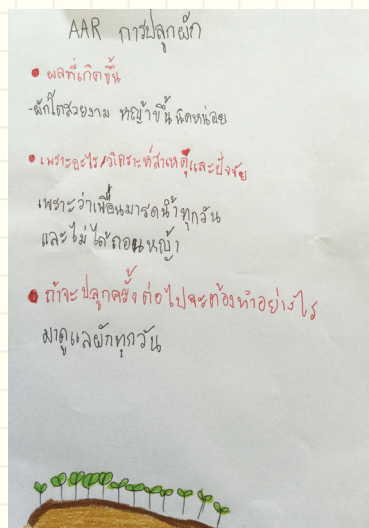 AAR การปลูกผัก
• ผลที่เกิดขึ้น
-ผักโตสวยงาม หญ้าขึ้นนิดหน่อย
• เพราะอะไร/วิเคราะห์สาเหตุและปัจจัย
เพราะว่าเพื่อนมารดน้ำทุกวัน
และไม่ได้ถอนหญ้า
• ถ้าจะปลูกครั้งต่อไปจะต้องทำอย่างไร
มาดูแลผักทุกวัน